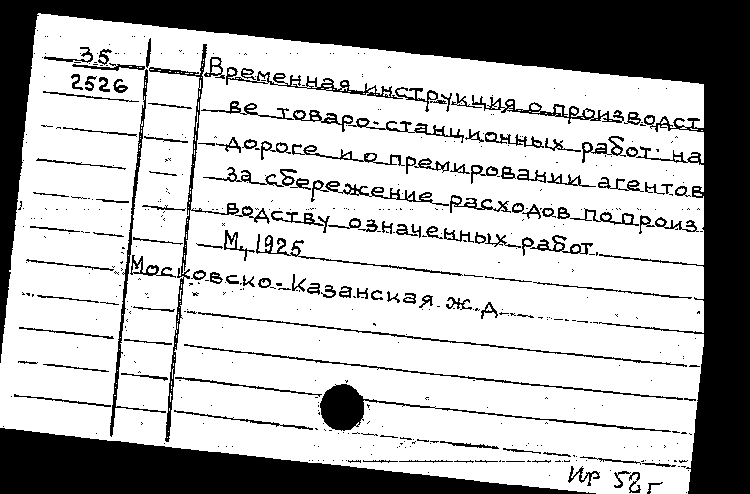 35
2526
Временная инструкция о производст
ве товаро-станционных работ на
дороге и о премировании агентов
за сбережение расходов по произ-
водству означенных работ.
М., 1925
Московско-Казанская ж.д.
Ир 58г